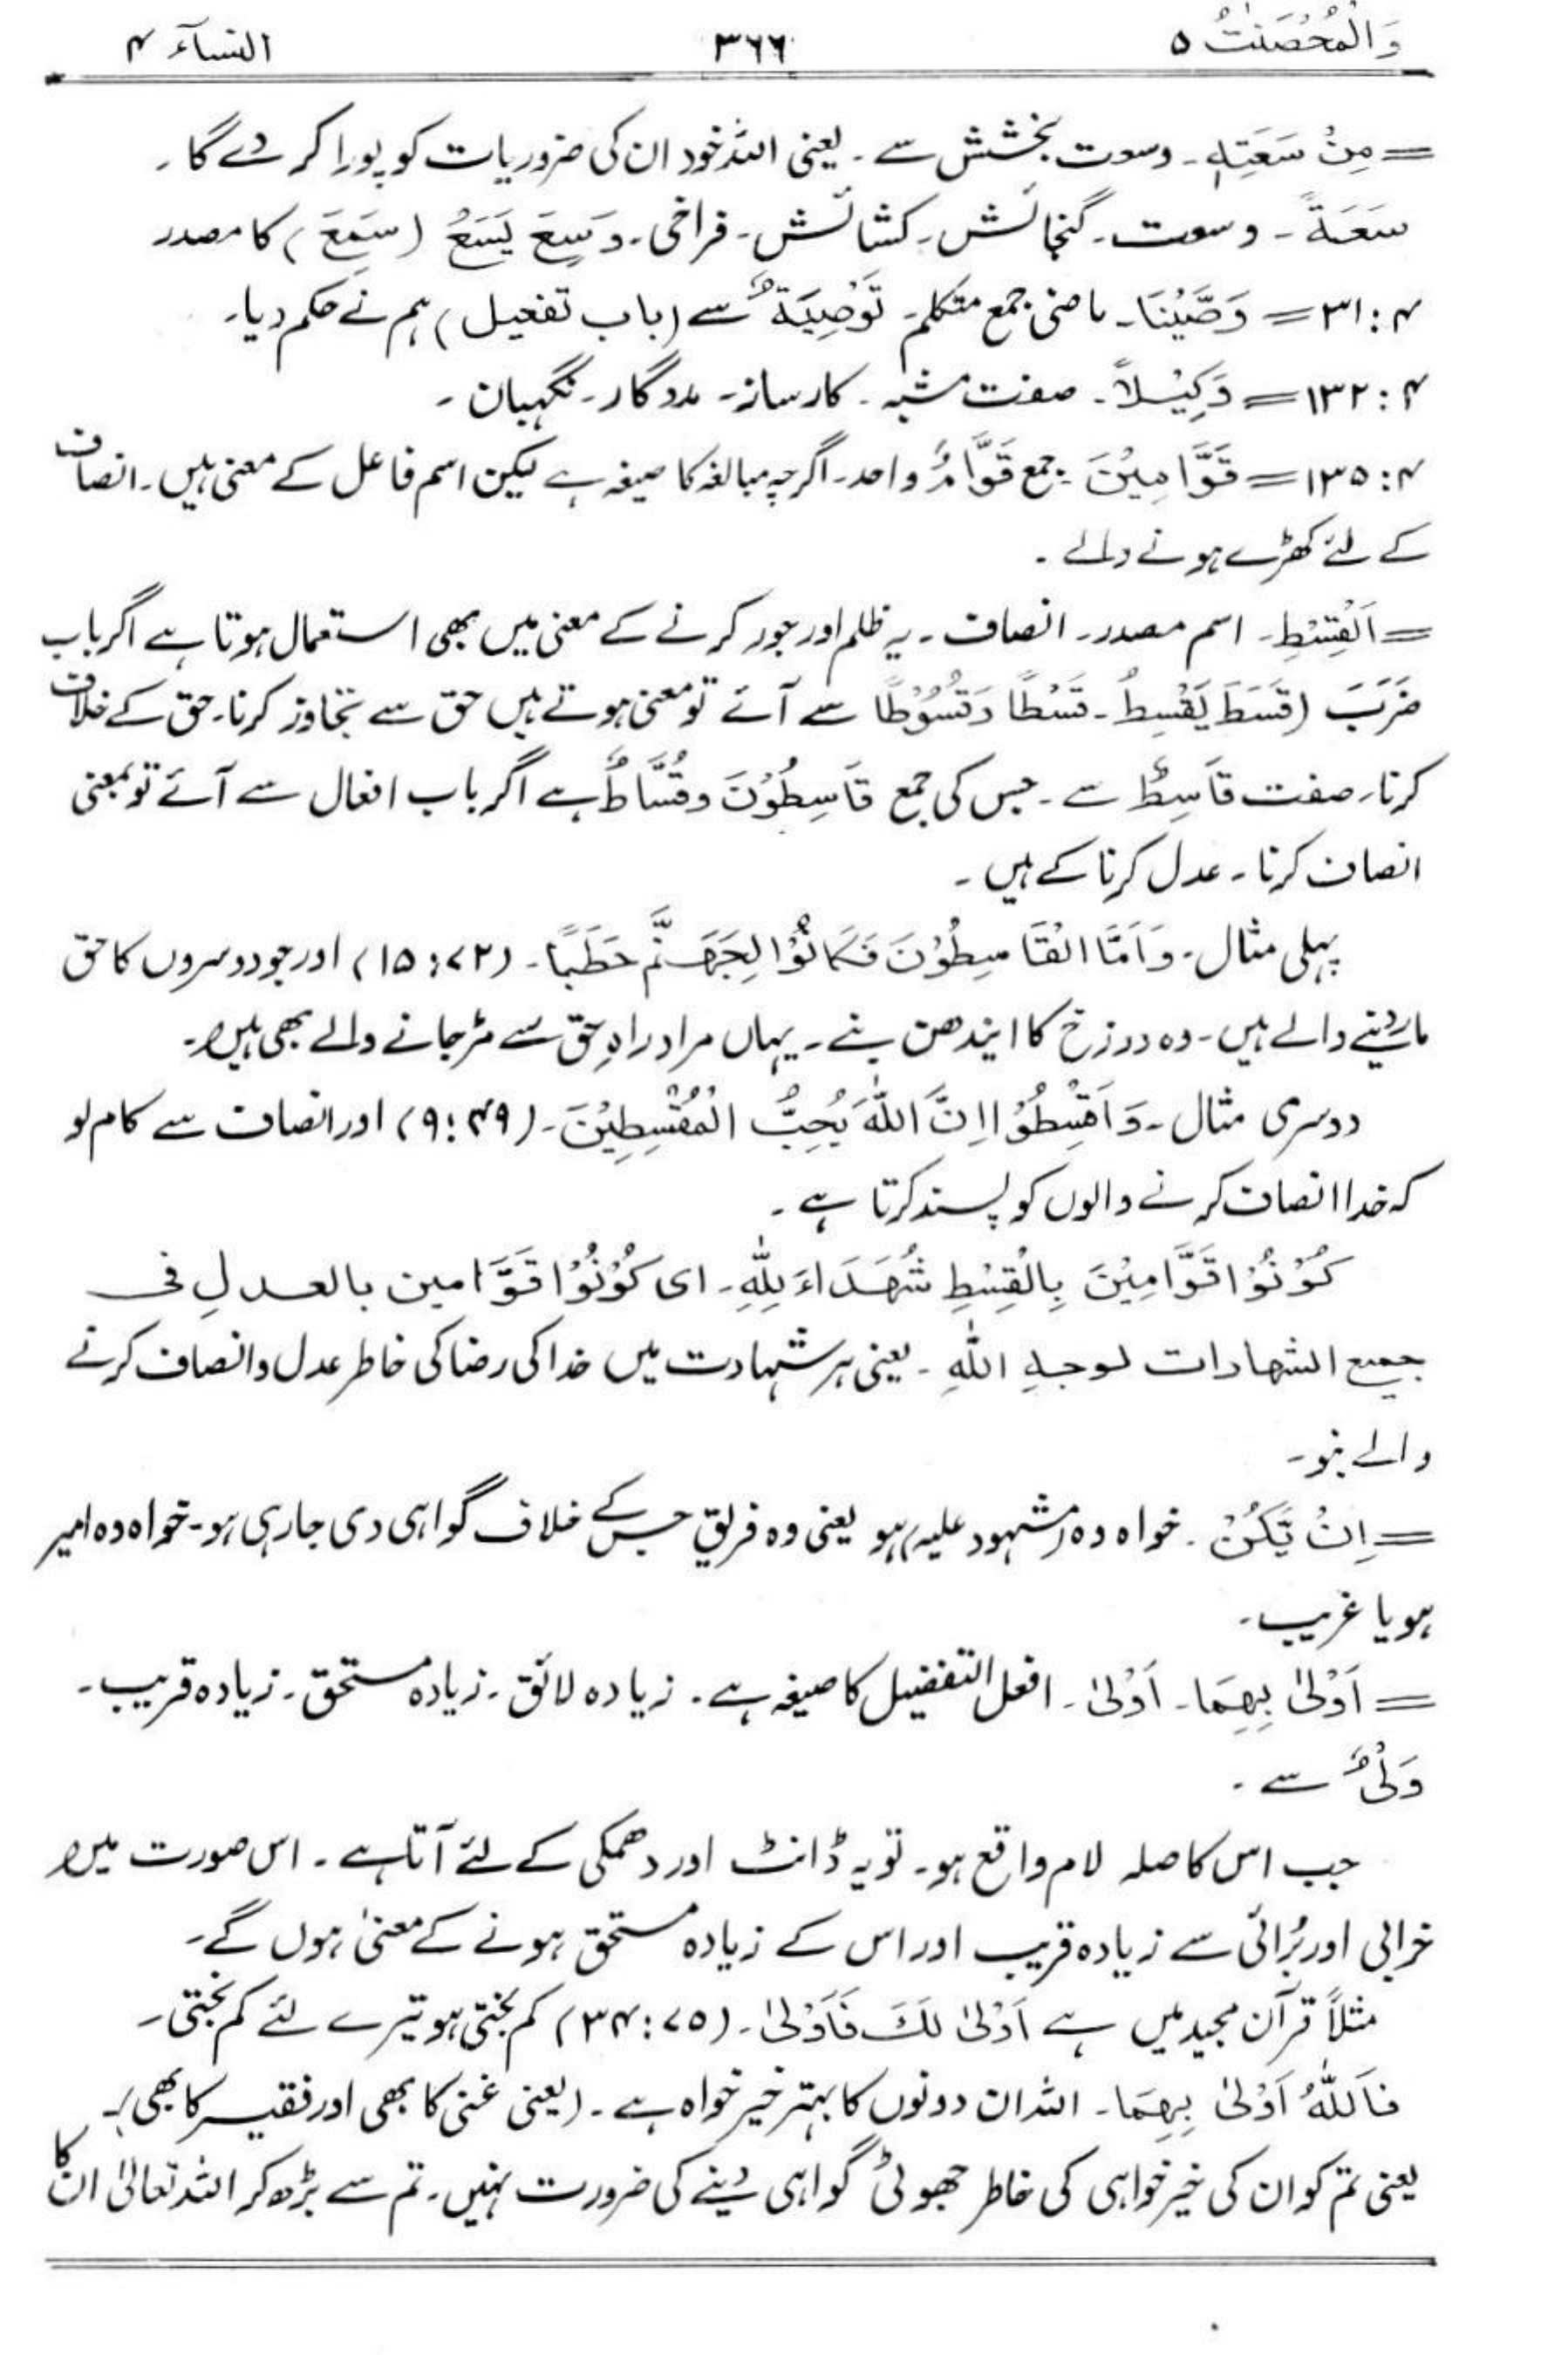 وَالْمُحْصَنٰتُ ۵ ۳۶۶ النسآء ۴
= مِنْ سَعَتِهٖ ۔ وسعت بخشش سے ۔ یعنی اللہ خود ان کی ضروریات کو پورا کر دے گا ۔
سَعَةً ۔ وسعت ۔ گنجائش ۔ کشائش ۔ فراخی ۔ وَسِعَ یَسَعُ (سَمِعَ) کا مصدر
۴ : ۳۱ = وَصَّیْنَا ۔ ماضی جمع متکلم ۔ تَوْصِیَةٌ سے (باب تفعیل) ہم نے حکم دیا ۔
۴ : ۱۳۲ = وَکِیْلاً ۔ صفت مشبہ ۔ کارساز ۔ مددگار ۔ نگہبان ۔
۴ : ۱۳۵ = قَوَّامِیْنَ ۔ جمع قَوَّامٌ واحد ۔ اگرچہ مبالغہ کا صیغہ ہے لیکن اسم فاعل کے معنی ہیں ۔ انصاف
کے لئے کھڑے ہونے والے ۔
= اَلْقِسْطِ ۔ اسم مصدر ۔ انصاف ۔ یہ ظلم اور جور کرنے کے معنی میں بھی استعمال ہوتا ہے اگر باب
ضَرَبَ (قَسَطَ یَقْسِطُ ۔ قَسْطًا وَقُسُوْطًا سے آئے تو معنی ہوتے ہیں حق سے تجاوز کرنا ۔ حق کے خلاف
کرنا ۔ صفت قَاسِطٌ سے ۔ جس کی جمع قَاسِطُوْنَ وقُسَّاطٌ ہے اگر باب افعال سے آئے تو بمعنی
انصاف کرنا ۔ عدل کرنا کے ہیں ۔
پہلی مثال ۔ وَاَمَّا الْقَاسِطُوْنَ فَکَانُوْا لِجَهَنَّمَ حَطَبًا ۔ (۷۲ : ۱۵) اور جو دوسروں کا حق
مارنے والے ہیں ۔ وہ دوزخ کا ایندھن بنے ۔ یہاں مراد راہِ حق سے مڑ جانے والے بھی ہیں ۔
دوسری مثال ۔ وَاَقْسِطُوْا اِنَّ اللّٰهَ یُحِبُّ الْمُقْسِطِیْنَ ۔ (۴۹ : ۹) اور انصاف سے کام لو
کہ خدا انصاف کرنے والوں کو پسند کرتا ہے ۔
کُوْنُوْا قَوَّامِیْنَ بِالْقِسْطِ شُهَدَاءَ لِلّٰهِ ۔ ای کُوْنُوْا قَوَّامین بالعدلِ فی
جمیع الشهادات لوجهِ اللّٰهِ ۔ یعنی ہر شہادت میں خدا کی رضا کی خاطر عدل و انصاف کرنے
والے بنو ۔
= اِنْ یَّکُنْ ۔ خواہ وہ (مشہود علیہ) ہو یعنی وہ فریق جس کے خلاف گواہی دی جا رہی ہو ۔ خواہ وہ امیر
ہو یا غریب ۔
= اَوْلٰی بِهِمَا ۔ اَوْلٰی ۔ افعل التفضیل کا صیغہ ہے ۔ زیادہ لائق ۔ زیادہ مستحق ۔ زیادہ قریب ۔
وَلْیٌ سے ۔
جب اس کا صلہ لام واقع ہو ۔ تو یہ ڈانٹ اور دھمکی کے لئے آتا ہے ۔ اس صورت میں
خرابی اور بُرائی سے زیادہ قریب اور اس کے زیادہ مستحق ہونے کے معنیٰ ہوں گے ۔
مثلاً قرآن مجید میں ہے اَوْلٰی لَكَ فَاَوْلٰی ۔ (۷۵ : ۳۴) کم بختی ہو تیرے لئے کم بختی ۔
فَاللّٰهُ اَوْلٰی بِهِمَا ۔ اللہ ان دونوں کا بہتر خیر خواہ ہے ۔ (یعنی غنی کا بھی اور فقیر کا بھی) ۔
یعنی تم کو ان کی خیر خواہی کی خاطر جھوٹی گواہی دینے کی ضرورت نہیں ۔ تم سے بڑھ کر اللہ تعالیٰ ان کا